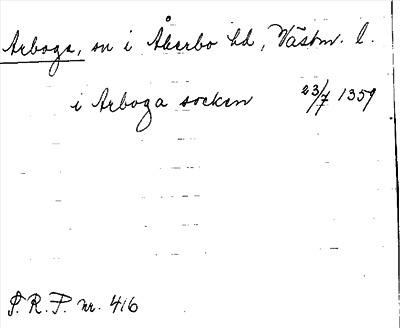 Arboga, sn i Åkerbo hd, Västm. l.
i Arboga socken 23/7 1359
S. R. P. nr. 416